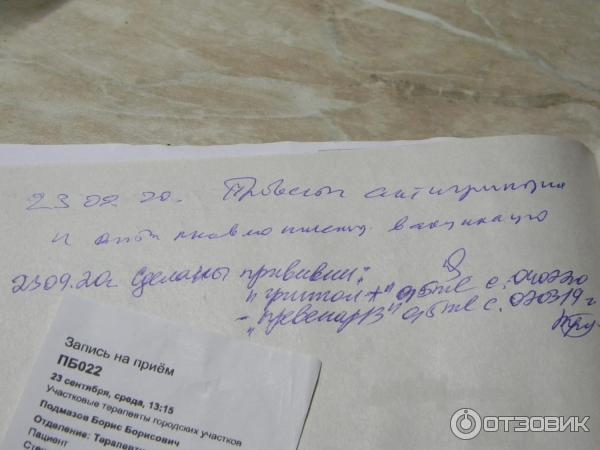 23 09. 20. Провести антигриппозн
и анти пневмококк. вакцинацию
23.09.20г. Сделаны прививки:
"гриппол+" 0,5 ml с. 040220
- "превенар13" 0,5 ml с. 020319 г
Запись на приём
ПБ022
23 сентября, среда, 13:15
Участковые терапевты городских участков
Подмазов Борис Борисович
Отделение: Терапевти
Пациент
ОТЗОВИК